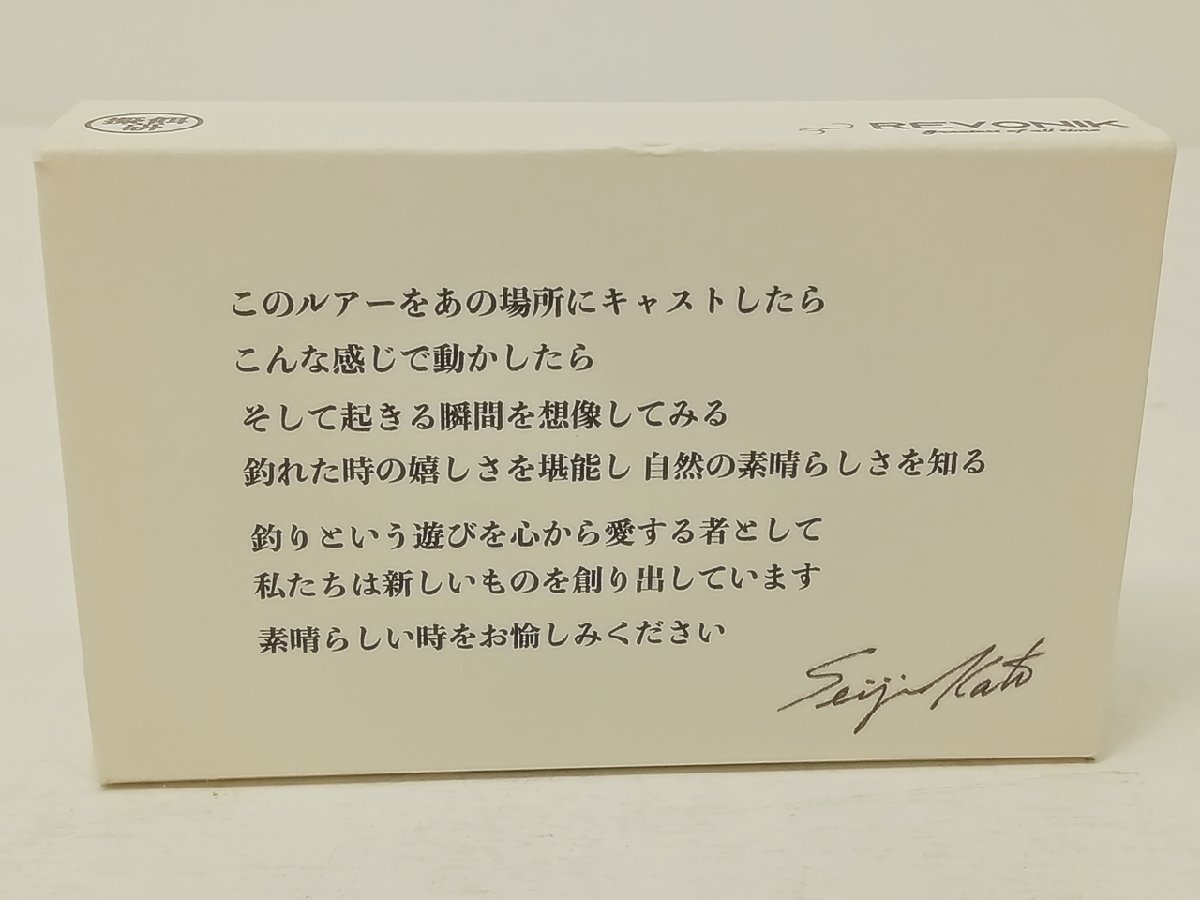 REVONIK
このルアーをあの場所にキャストしたら
こんな感じで動かしたら
そして起きる瞬間を想像してみる
釣れた時の嬉しさを堪能し 自然の素晴らしさを知る
釣りという遊びを心から愛する者として
私たちは新しいものを創り出しています
素晴らしい時をお愉しみください
Seiji Kato